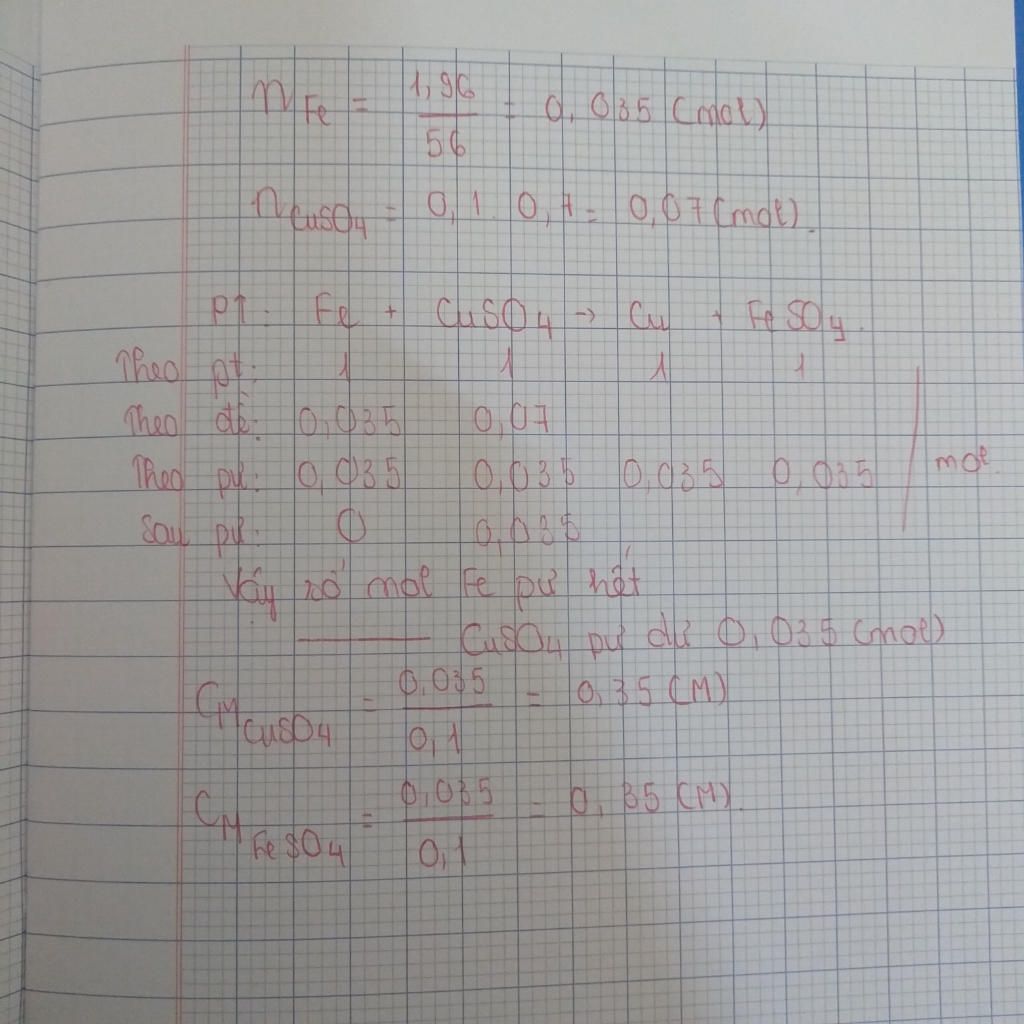 nFe = 1,96/56 = 0,035 (mol)
nCuSO4 = 0,1. 0,7 = 0,07 (mol).
PT: Fe + CuSO4 → Cu + FeSO4.
Theo pt: 1 1 1 1
Theo đề: 0,035 0,07
Theo pư: 0,035 0,035 0,035 0,035 / mol.
Sau pư: 0 0,035
Vậy số mol Fe pư hết
——— CuSO4 pư dư 0,035 (mol)
CM CuSO4 = 0,035/0,1 = 0,35 (M)
CM FeSO4 = 0,035/0,1 = 0,35 (M).